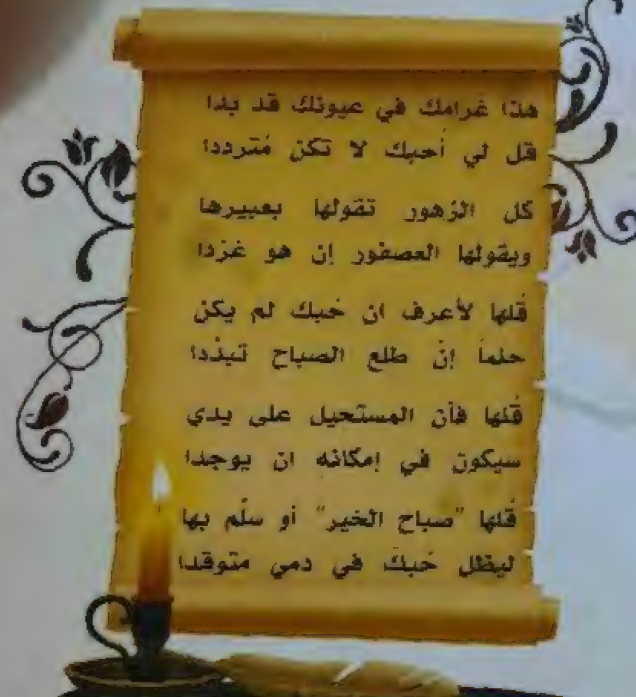 هذا غرامك في عيونك قد بدا
قل لي أحبك لا تكن مُترددا
كل الزهور تقولها بعبيرها
ويقولها العصفور إن هو غردا
قُلها لأعرف ان حُبك لم يكن
حلماً إنّ طلع الصباح تبدّدا
قُلها فأن المستحيل على يدي
سيكون في إمكانه ان يوجدا
قُلها "صباح الخير" أو سلّم بها
ليظل حُبكَ في دمي متوقدا